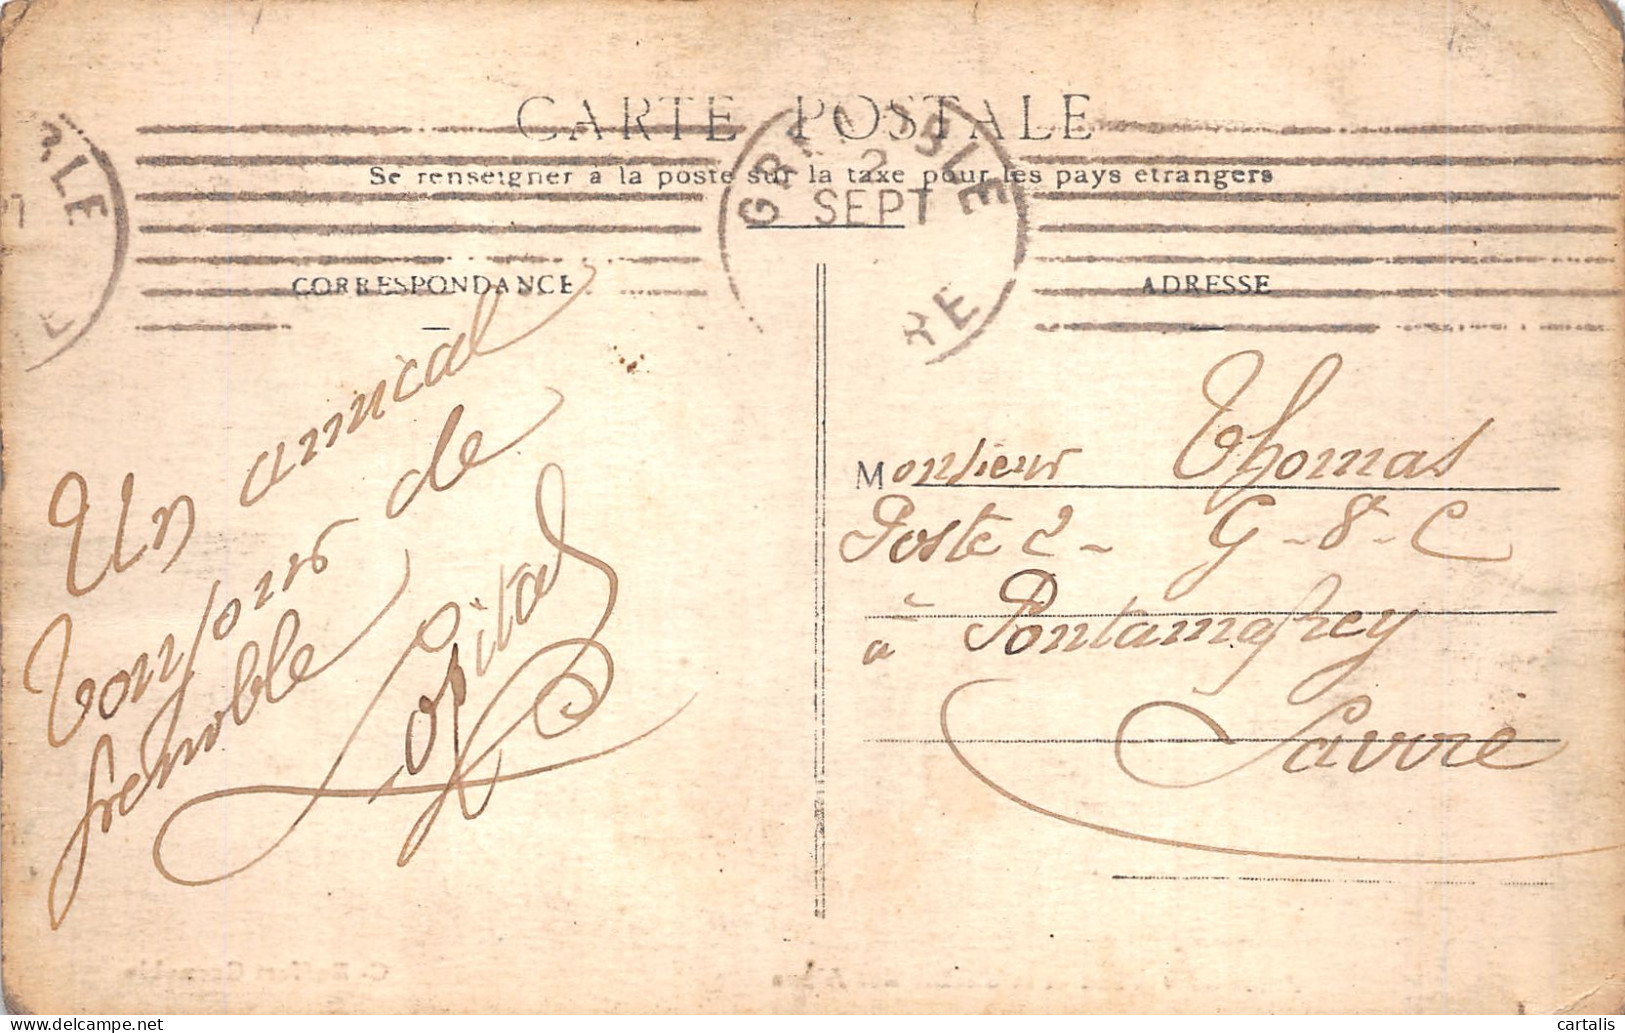 CARTE POSTALE
Se renseigner à la poste sur la taxe pour les pays étrangers
GRENOBLE
2
SEPT
CORRESPONDANCE
ADRESSE
Un amical
bonjour de
Grenoble
Monsieur Thomas
Poste 2 - G - 8 - C
à Pontamafrey
Savoie
cartalis